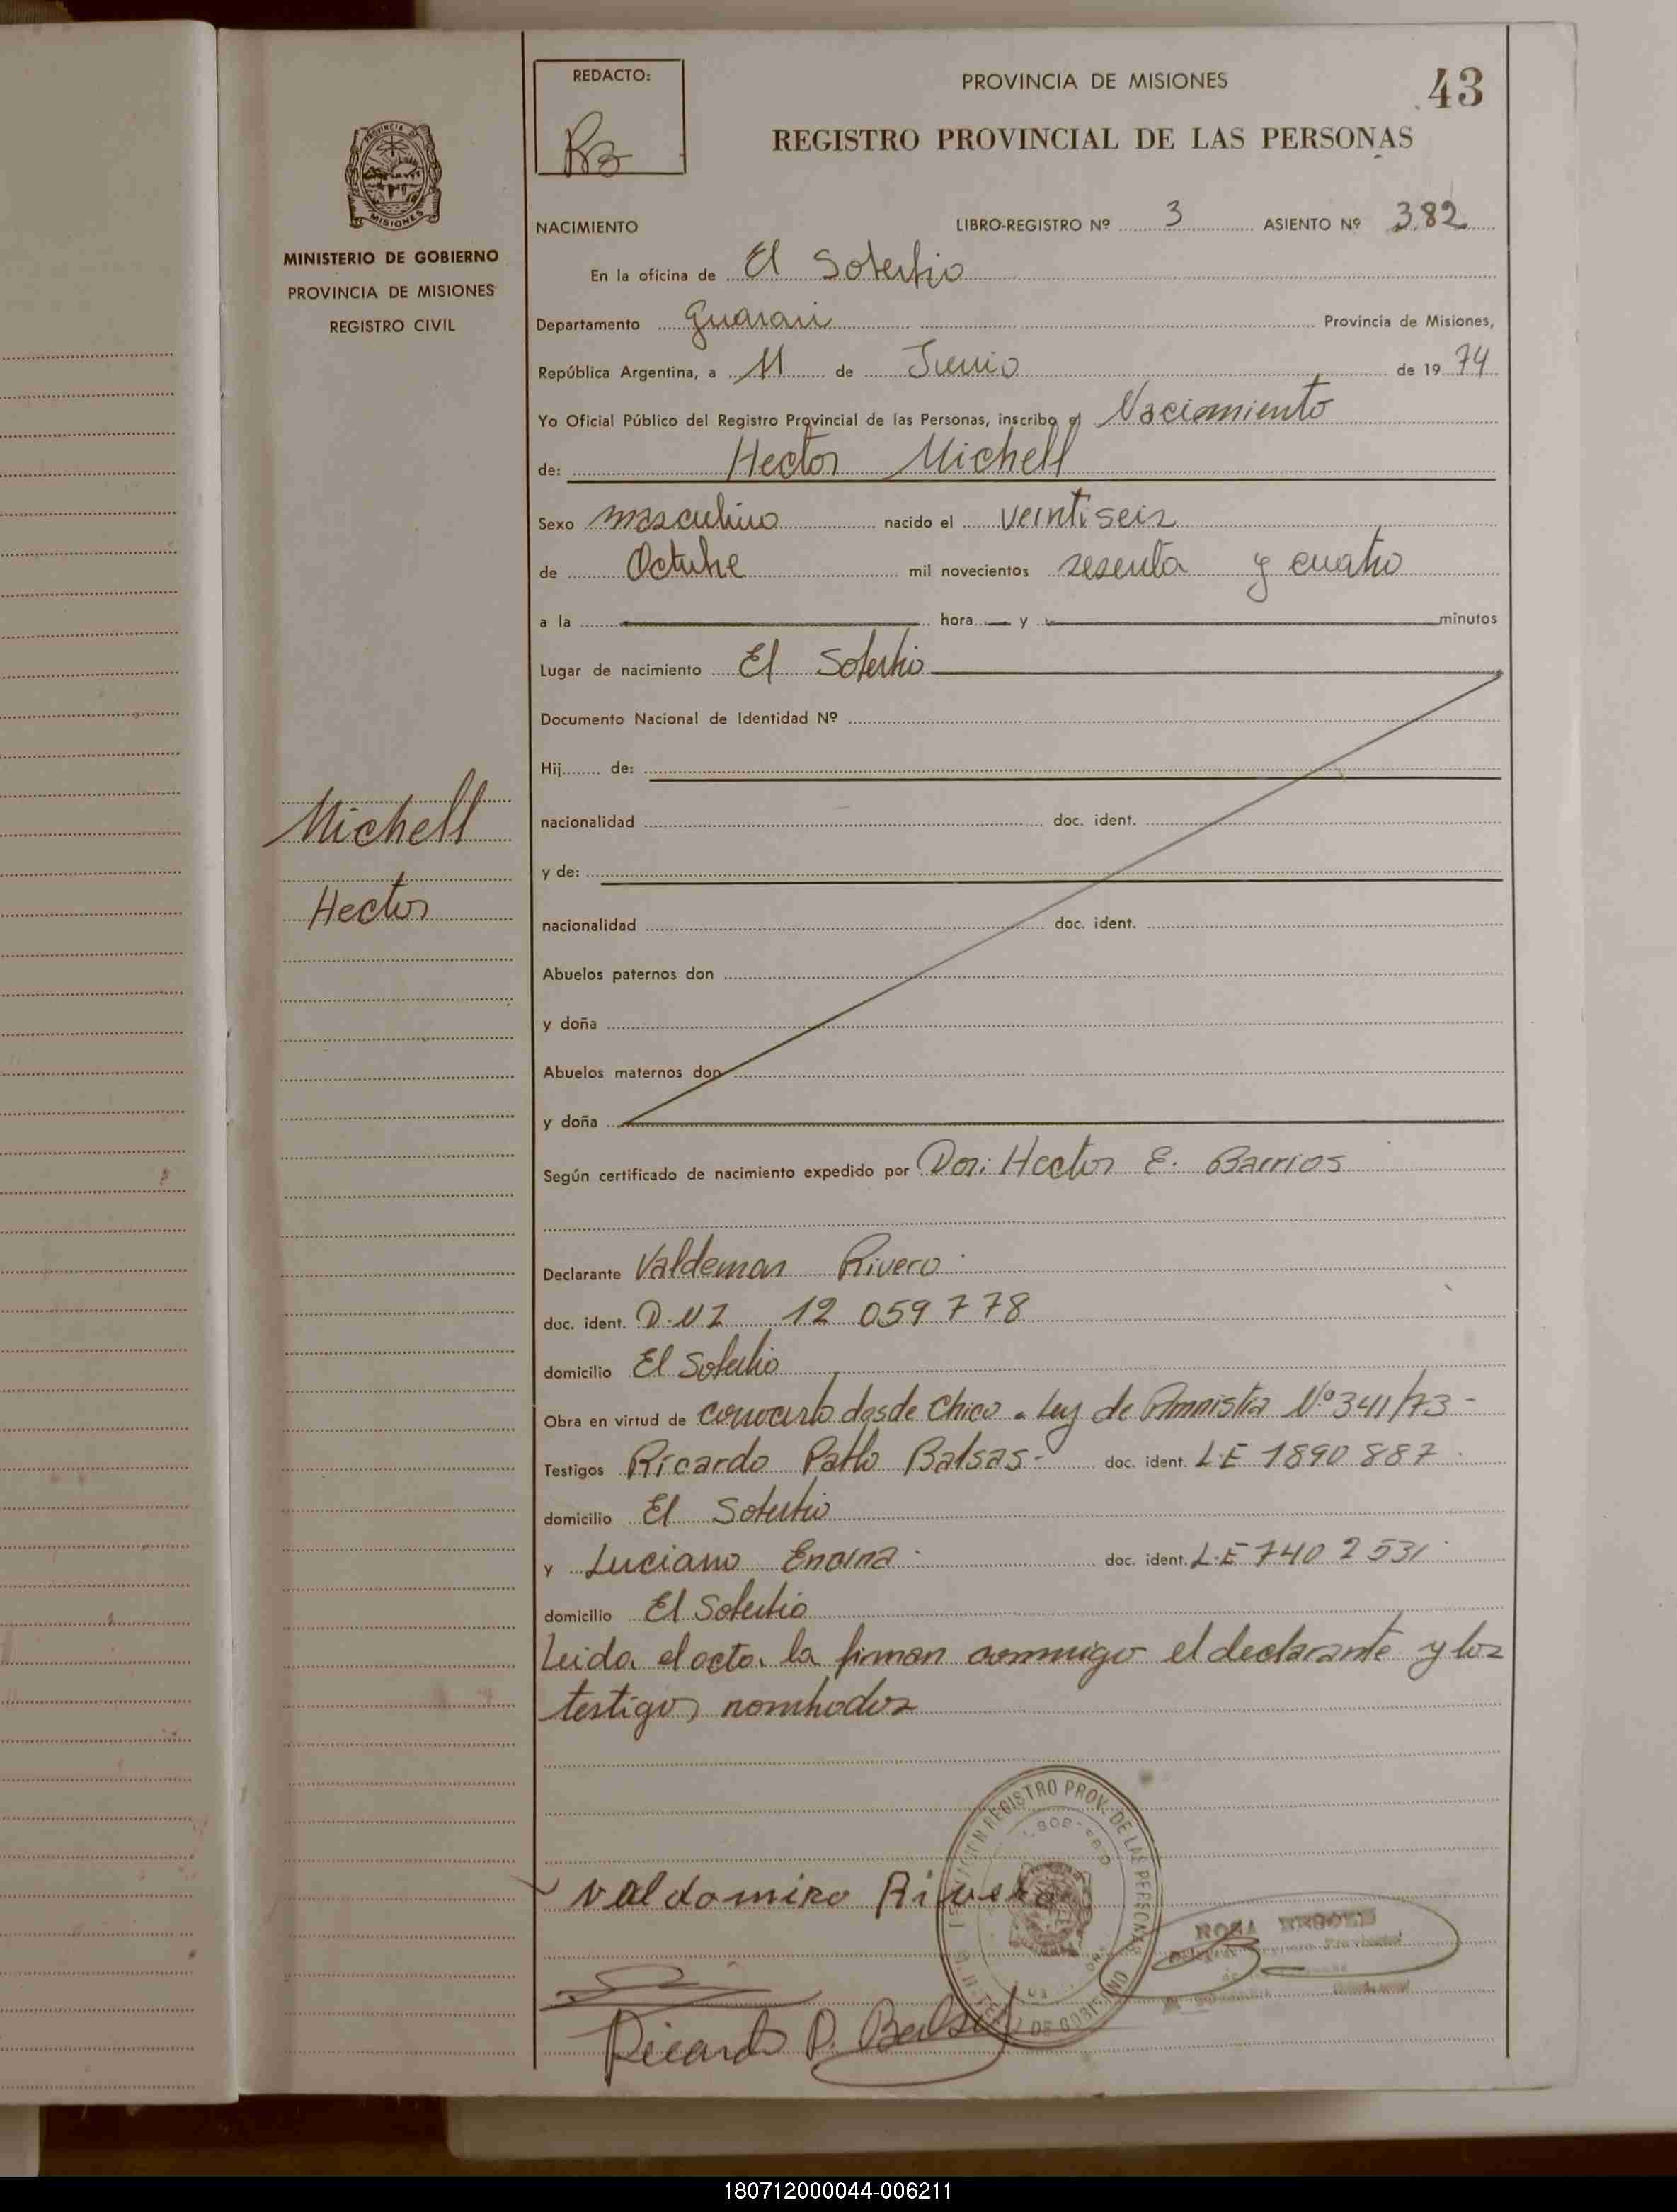 REDACTO:
PROVINCIA DE MISIONES
43
REGISTRO PROVINCIAL DE LAS PERSONAS
MISIONES
MINISTERIO DE GOBIERNO
PROVINCIA DE MISIONES
REGISTRO CIVIL
NACIMIENTO LIBRO-REGISTRO Nº 3 ASIENTO Nº 382
En la oficina de El Soberbio
Departamento Guarani Provincia de Misiones,
República Argentina, a 11 de Junio de 1974
Yo Oficial Público del Registro Provincial de las Personas, inscribo el Nacimiento
de: Hector Michell
Sexo masculino nacido el veintiseis
de Octubre mil novecientos sesenta y cuatro
a la hora y minutos
Lugar de nacimiento El Soberbio
Documento Nacional de Identidad Nº
Hij de:
Michell
nacionalidad doc. ident.
y de:
Hector
nacionalidad doc. ident.
Abuelos paternos don
y doña
Abuelos maternos don
y doña
Según certificado de nacimiento expedido por Dor: Hector E. Barrios
Declarante Valdemar Rivero
doc. ident. D.N.I 12 059 778
domicilio El Soberbio
Obra en virtud de conocerlo desde chico. Ley de Amnistia Nº 341/73 -
Testigos Ricardo Pablo Balsas - doc. ident. L.E 1890 887
domicilio El Soberbio
y Luciano Encina doc. ident. L.E 740 2 531
domicilio El Soberbio
Leida el acta la firman conmigo el declarante y los
testigos nombrados
REGISTRO PROV. DE LAS PERSONAS
Valdomiro Rivero
ROSA
Ricardo P. Balsas
180712000044-006211